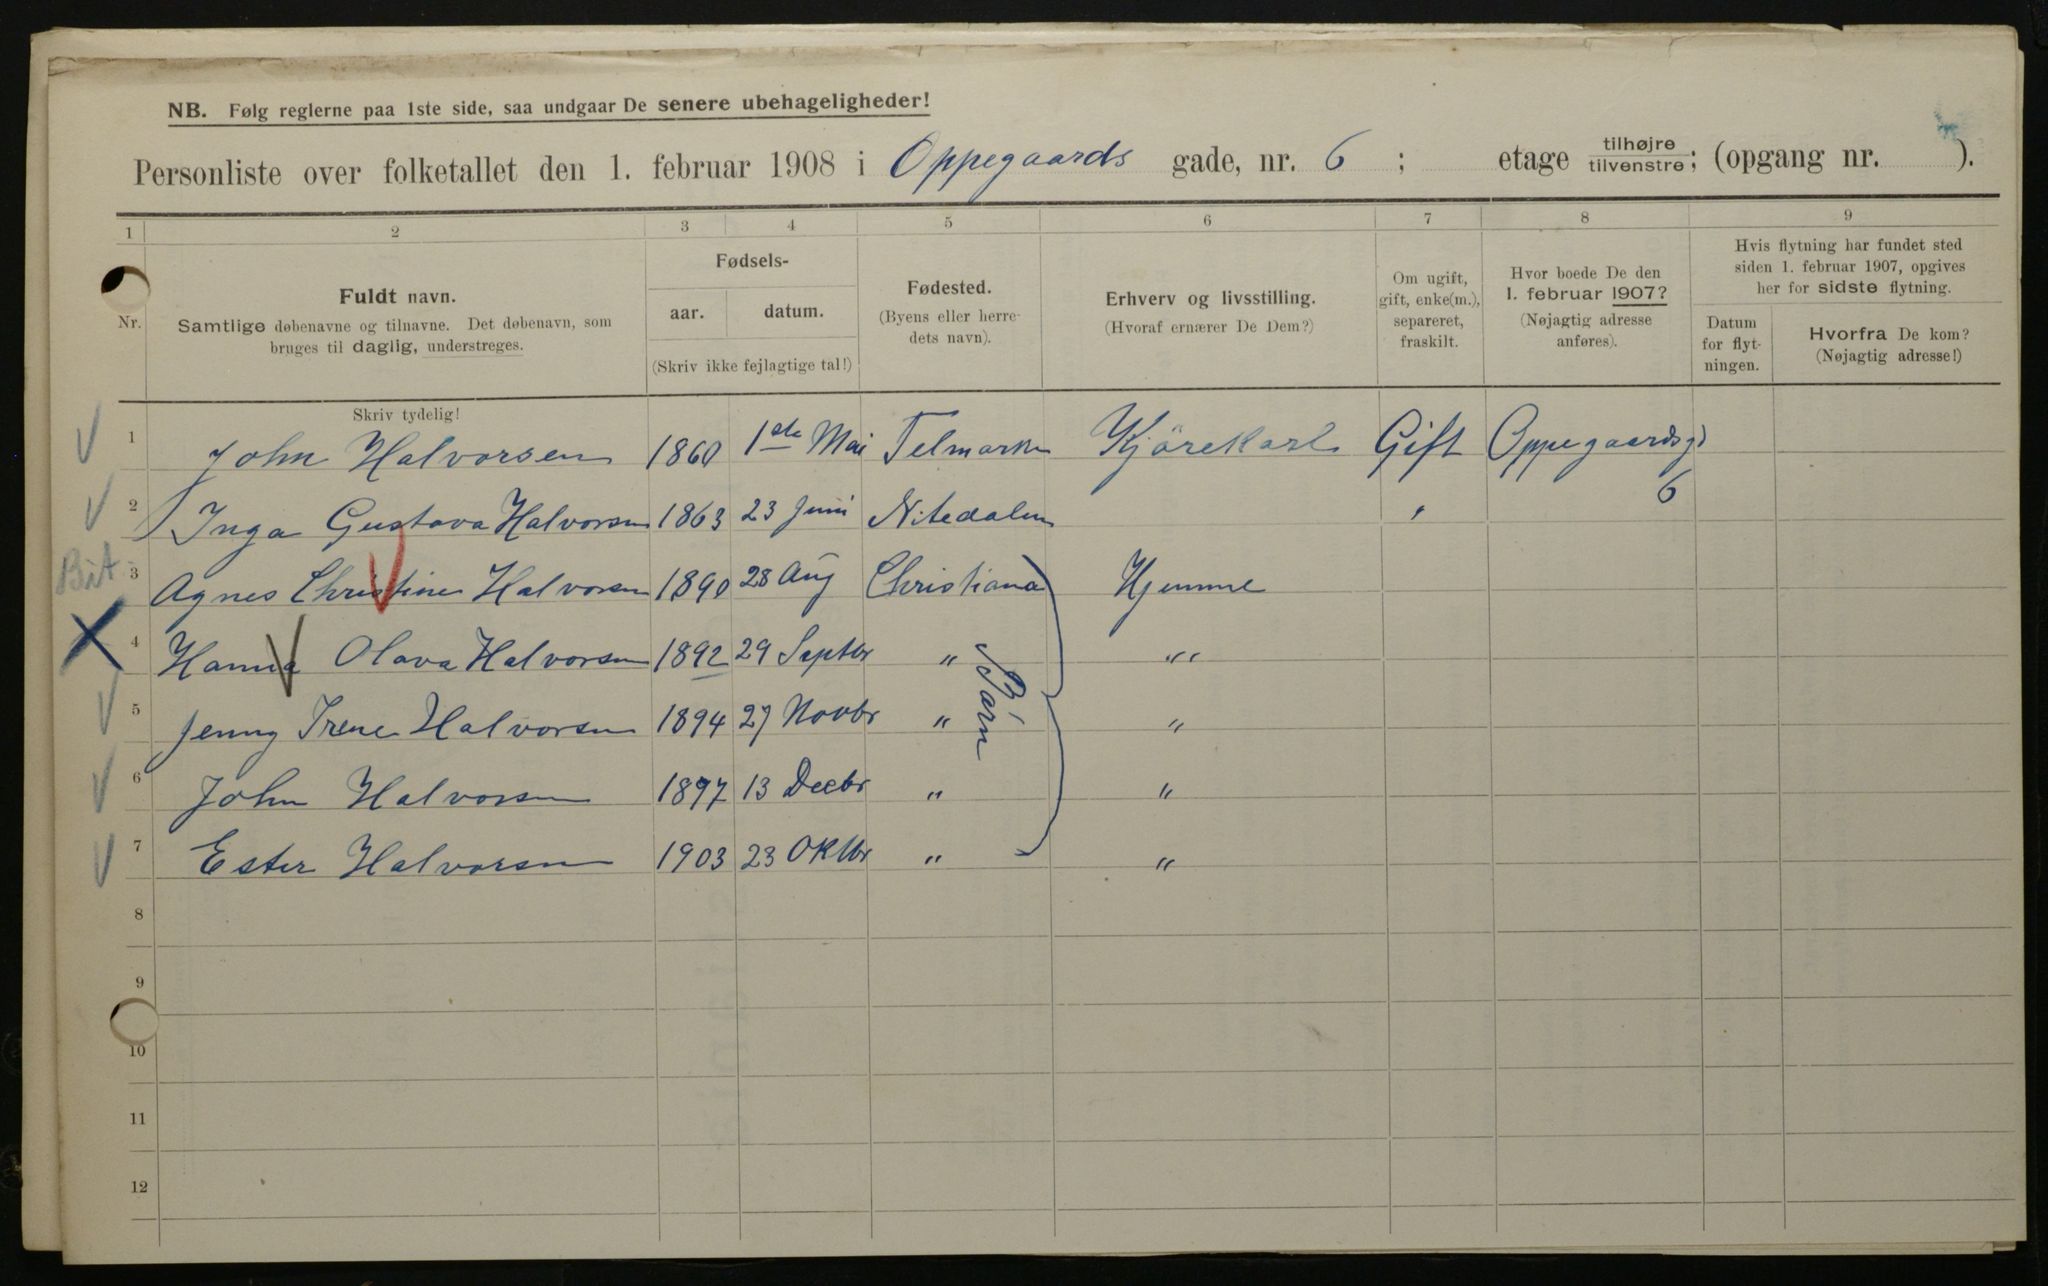 NB. Følg reglerne paa 1ste side, saa undgaar De senere ubehageligheder!
Personliste over folketallet den 1. februar 1908 i Oppegaards gade, nr. 6 ; etage tilhøjre tilvenstre; (opgang nr. ).
1 2 3 4 5 6 7 8 9
Nr.
Fuldt navn.
Samtlige døbenavne og tilnavne. Det døbenavn, som
bruges til daglig, understreges.
Skriv tydelig!
Fødsels-
aar. datum.
(Skriv ikke fejlagtige tal!)
Fødested.
(Byens eller herre-
dets navn).
Erhverv og livsstilling.
(Hvoraf ernærer De Dem?)
Om ugift,
gift, enke(m.),
separeret,
fraskilt.
Hvor boede De den
1. februar 1907?
(Nøjagtig adresse
anføres).
Hvis flytning har fundet sted
siden 1. februar 1907, opgives
her for sidste flytning.
Datum
for flyt-
ningen.
Hvorfra De kom?
(Nøjagtig adresse!)
1 John Halvorsen 1860 1ste Mai Telmarken Kjörekarl Gift Oppegaardsgd
6
2 Inga Gustava Halvorsen 1863 23 Juni Nitedalen "
3 Agnes Christine Halvorsen 1890 28 Aug Christiana Hjemme
4 Hanna Olava Halvorsen 1892 29 Septbr " " "
5 Jenny Irene Halvorsen 1894 27 Novbr " "
6 John Halvorsen 1897 13 Decbr " "
7 Ester Halvorsen 1903 23 Oktbr " "
Børn
8
9
10
11
12